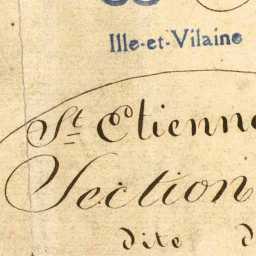 Ille-et-Vilaine
St Etienne
Section
dite